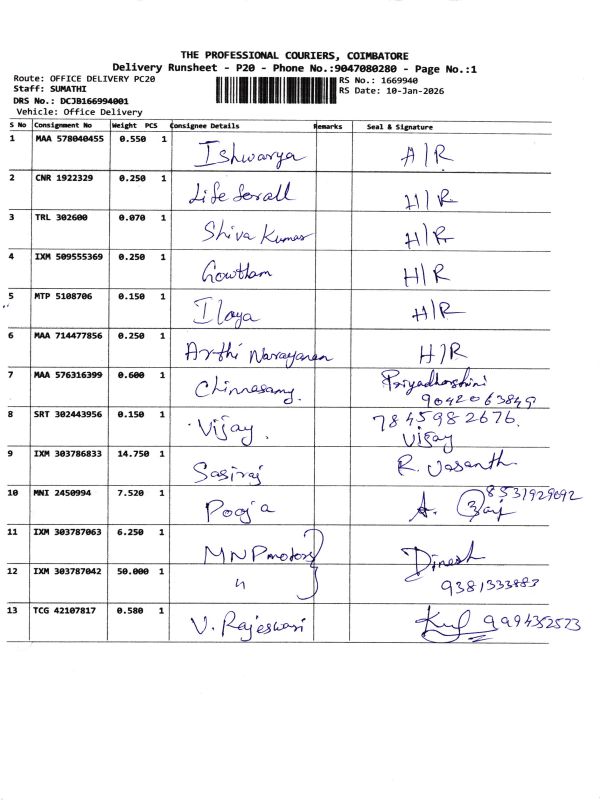 THE PROFESSIONAL COURIERS, COIMBATORE
Delivery Runsheet - P20 - Phone No.:9047080280 - Page No.:1
Route: OFFICE DELIVERY PC20
Staff: SUMATHI
DRS No.: DCJB166994001
Vehicle: Office Delivery
RS No.: 1669940
RS Date: 10-Jan-2026
S No Consignment No Weight PCS Consignee Details Remarks Seal & Signature
1 MAA 578040455 0.550 1 Ishwarya A/R
2 CNR 1922329 0.250 1 Life forall H/R
3 TRL 302600 0.070 1 Shiva Kumar H/R
4 IXM 509555369 0.250 1 Gowtham H/R
5 MTP 5108706 0.150 1 Ilaya H/R
6 MAA 714477856 0.250 1 Arthi Narayanan H/R
7 MAA 576316399 0.600 1 Chinnasamy. Priyadharshini
9042063849
8 SRT 302443956 0.150 1 Vijay. 7845982676.
Vijay
9 IXM 303786833 14.750 1 Sasiraj R. Vasanth
10 MNI 2450994 7.520 1 Pooja A. 8531929692
11 IXM 303787063 6.250 1 MNP motors Dinesh
12 IXM 303787042 50.000 1 " 9381333883
13 TCG 42107817 0.580 1 V. Rajeswari 9994352523